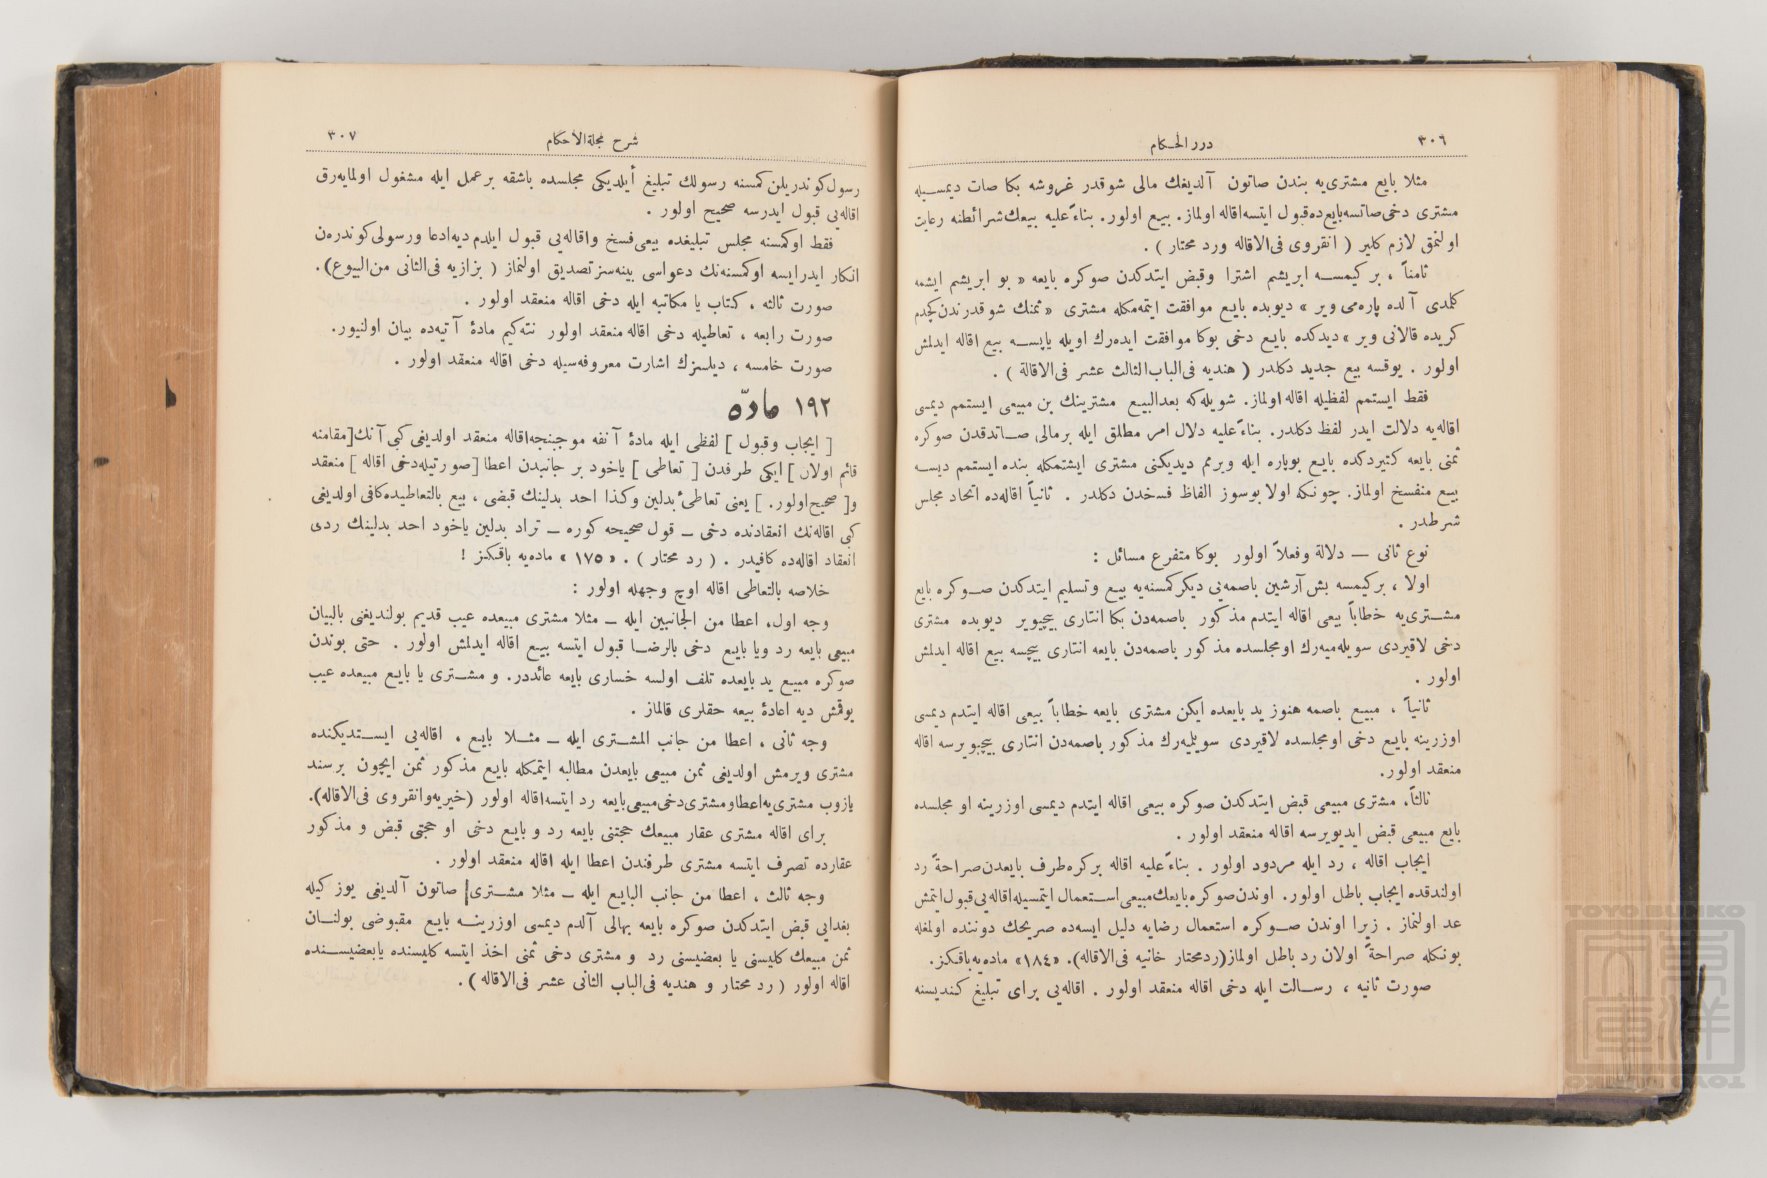 ٣٠٦
درر الحـكام
مثلا بايع مشترى‌يه بندن صاتون آلديغك مالى شو قدر غروشه بكا صات ديمسـيله
مشترى دخى صاتسه بايع ده قبول ايتسه اقاله اولماز. بيع اولور. بناءً عليه بيعك شرائطنه رعايت
اولنمق لازم كلير ( انقروى فى الاقاله ورد محتار ) .
ثامناً ، بر كيمسـه ابريشم اشترا وقبض ايتدكدن صوكره بايعه « بو ابريشم ايشمه
كلمدى آلده پاره‌مى وير » ديوبده بايع موافقت ايتمه‌مكله مشترى « ثمنك شو قدرندن كچدم
كريده قالانى وير » ديدكده بايع دخى بوكا موافقت ايده‌رك اويله ياپسـه بيع اقاله ايدلمش
اولور . يوقسه بيع جديد دكلدر ( هنديه فى الباب الثالث عشر فى الاقالة ) .
فقط ايستمم لفظيله اقاله اولماز. شويله‌كه بعدالبيع مشترينك بن مبيعى ايستمم ديمسى
اقاله‌يه دلالت ايدر لفظ دكلدر. بناءً عليه دلال امر مطلق ايله بر مالى صـاتدقدن صوكره
ثمنى بايعه كتيردكده بايع بوپاره ايله ويرمم ديديكنى مشترى ايشتمكله بنده ايستمم ديسـه
بيع منفسخ اولماز. چونكه اولا بوسوز الفاظ فسخدن دكلدر . ثانياً اقاله‌ده اتحاد مجلس
شرطدر .
نوع ثانى — دلالة وفعلاً اولور بوكا متفرع مسائل :
اولا ، بركيمسه بش آرشين باصمه‌يى ديكر كمسنه‌يه بيع وتسليم ايتدكدن صـوكره بايع
مشـترى‌يه خطاباً بيعى اقاله ايتدم مذكور باصمه‌دن بكا انتارى بيچيوير ديوبده مشترى
دخى لاقيردى سويله‌ميه‌رك اومجلسده مذكور باصمه‌دن بايعه انتارى بيچسه بيع اقاله ايدلمش
اولور .
ثانياً ، مبيـع باصمه هنوز يد بايعده ايكن مشترى بايعه خطاباً بيعى اقاله ايتدم ديمسى
اوزرينه بايع دخى اومجلسده لاقيردى سويلميه‌رك مذكور باصمه‌دن انتارى بيچيويرسه اقاله
منعقد اولور.
ثالثاً، مشترى مبيعى قبض ايتدكدن صوكره بيعى اقاله ايتدم ديمسى اوزرينه او مجلسده
بايع مبيعى قبض ايديويرسه اقاله منعقد اولور .
ايجاب اقاله ، رد ايله مردود اولور . بناءً عليه اقاله بركره طرف بايعدن صراحةً رد
اولندقده ايجاب باطل اولور. اوندن صوكره بايعك مبيعى اسـتعمال ايتمسيله اقاله‌يى قبول ايتمش
عد اولنماز . زيرا اوندن صـوكره استعمال رضايه دليل ايسه‌ده صريحك دوننده اولمغله
بونكله صراحةً اولان رد باطل اولماز (ردمحتار خانيه فى الاقاله). «١٨٤» ماده‌يه باقكز.
صورت ثانيه ، رسـالت ايله دخى اقاله منعقد اولور . اقاله‌يى براى تبليغ كنديسنه
شرح مجلة الأحكام
٣٠٧
رسول كوندريلن كمسنه رسولك تبليغ أيلديكى مجلسده باشقه بر عمل ايله مشغول اولمايه‌رق
اقاله‌يى قبول ايدرسه صحيح اولور .
فقط اوكمسنه مجلس تبليغده بيعى فسخ واقاله‌يى قبول ايلدم ديه ادعا ورسولى كوندره‌ن
انكار ايدرايسه اوكمسنه‌نك دعواسى بينه‌سز تصديق اولنماز ( بزازيه فى الثانى من البيوع).
صورت ثالثه ، كتاب يا مكاتبه ايله دخى اقاله منعقد اولور .
صورت رابعه ، تعاطيله دخى اقاله منعقد اولور نته‌كيم مادۀ آتيه‌ده بيان اولنيور.
صورت خامسه ، ديلسزك اشارت معروفه‌سيله دخى اقاله منعقد اولور .
١٩٢ مادّه
[ ايجاب وقبول ] لفظى ايله مادۀ آنفه موجبنجه اقاله منعقد اولديغى كبى آنك [مقامنه
قائم اولان ] ايكى طرفدن [ تعاطى ] ياخود بر جانبدن اعطا [صورتيله دخى اقاله ] منعقد
و[ صحيح اولور. ] يعنى تعاطئ بدلين وكذا احد بدلينك قبضى ، بيع بالتعاطيده كافى اولديغى
كبى اقاله‌نك انعقادنده دخى — قول صحيحه كوره — تراد بدلين ياخود احد بدلينك ردى
انعقاد اقاله‌ده كافيدر . ( رد محتار ) . «١٧٥» ماده‌يه باقكز !
خلاصه بالتعاطى اقاله اوچ وجهله اولور :
وجه اول، اعطا من الجانبين ايله — مثلا مشترى مبيعده عيب قديم بولنديغنى بالبيان
مبيعى بايعه رد ويا بايع دخى بالرضـا قبول ايتسه بيع اقاله ايدلمش اولور . حتى بوندن
صوكره مبيـع يد بايعده تلف اولسه خسارى بايعه عائددر. و مشـترى يا بايع مبيعده عيب
يوقمش ديه اعادۀ بيعه حقلرى قالماز .
وجه ثانى ، اعطا من جانب المشـترى ايله — مثـلا بايع ، اقاله‌يى ايسـتديكنده
مشترى ويرمش اولديغى ثمن مبيعى بايعدن مطالبه ايتمكله بايع مذكور ثمن ايچون بر سند
يازوب مشترى‌يه اعطا ومشترى دخى مبيعى بايعه رد ايتسه اقاله اولور (خيريه وانقروى فى الاقاله).
براى اقاله مشترى عقار مبيعك حجتنى بايعه رد و بايع دخى او حجتى قبض و مذكور
عقارده تصرف ايتسه مشترى طرفندن اعطا ايله اقاله منعقد اولور .
وجه ثالث ، اعطا من جانب البايع ايله — مثلا مشـترى صاتون آلديغى يوز كيله
بغدايى قبض ايتدكدن صوكره بايعه بهالى آلدم ديمسى اوزرينـه بايع مقبوضى بولنـان
ثمن مبيعك كليسنى يا بعضيسنى رد و مشترى دخى ثمنى اخذ ايتسه كليسنده يابعضيسـنده
اقاله اولور ( رد محتار و هنديه فى الباب الثانى عشر فى الاقاله ) .
TOYO BUNKO